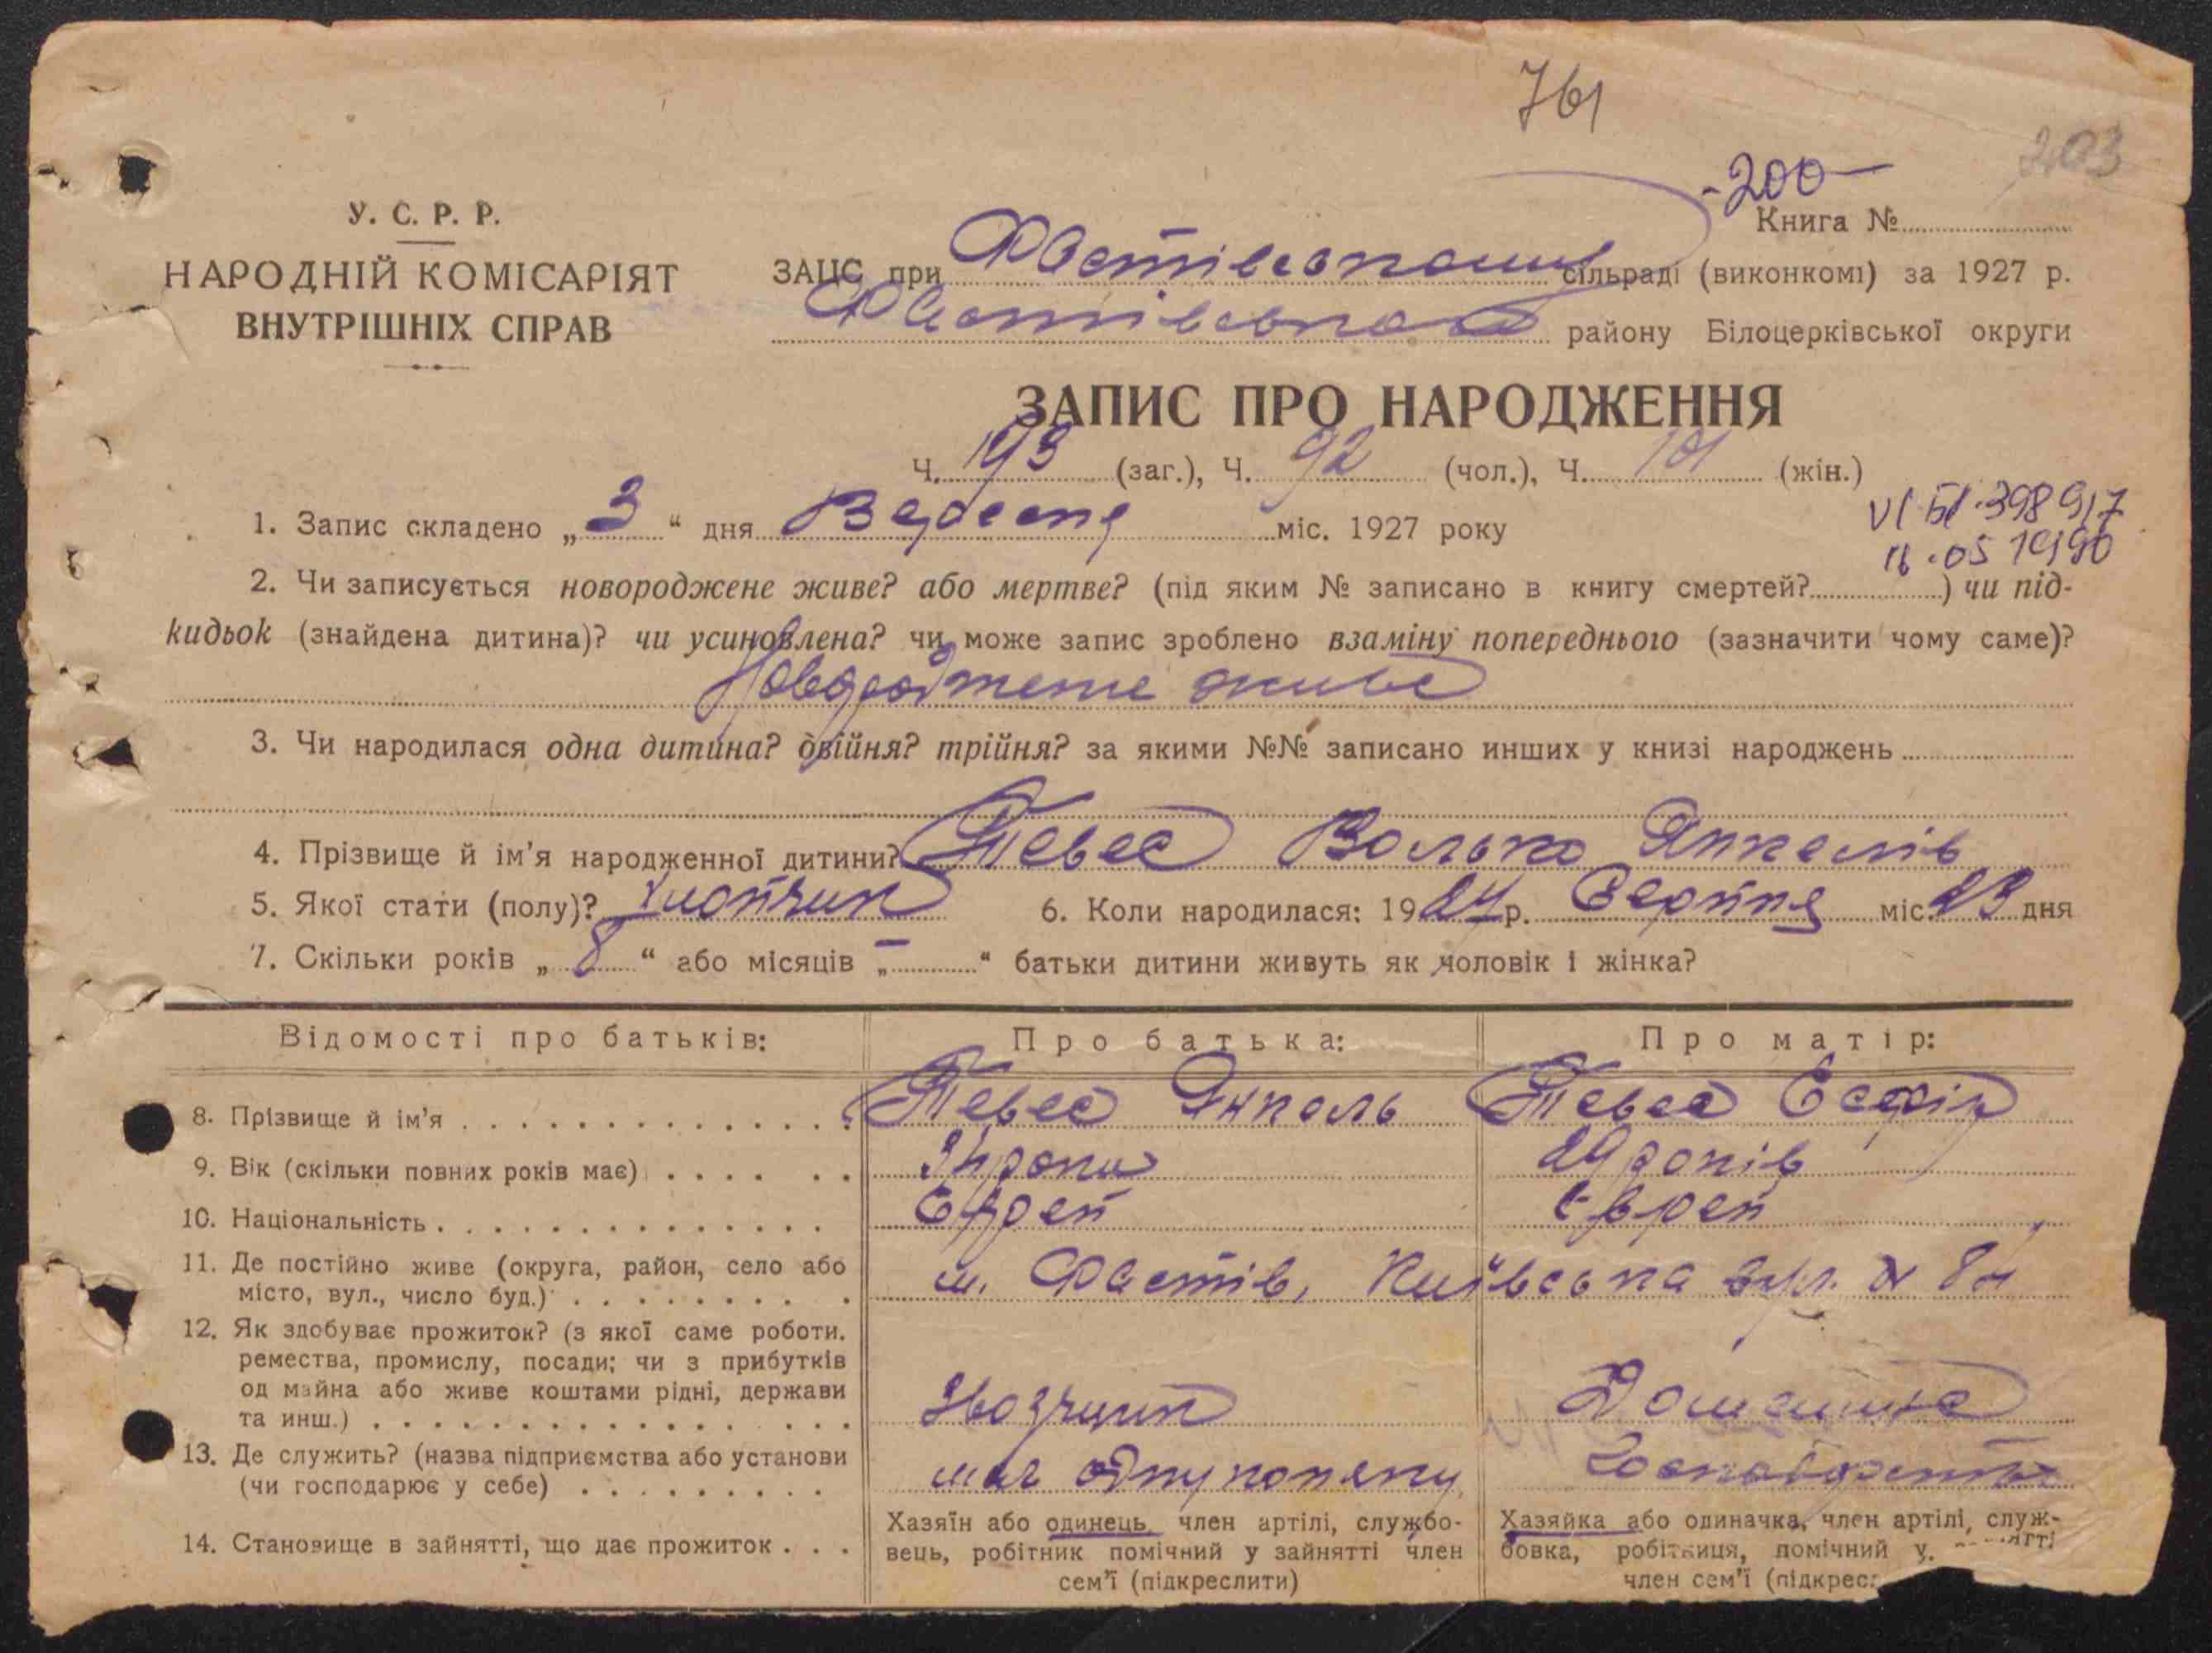 761
203
-200-
У. С. Р. Р.
Книга №
НАРОДНІЙ КОМІСАРІЯТ
ВНУТРІШНІХ СПРАВ
ЗАЦС при Фастівському сільраді (виконкомі) за 1927 р.
Фастівського району Білоцерківської округи
ЗАПИС ПРО НАРОДЖЕННЯ
Ч. 193 (заг.), Ч. 92 (чол.), Ч. 101 (жін.)
VI БІ 398917
16.05 1990
1. Запис складено „ 3 “ дня Вересня міс. 1927 року
2. Чи записується новороджене живе? або мертве? (під яким № записано в книгу смертей? ) чи під-
кидьок (знайдена дитина)? чи усиновлена? чи може запис зроблено взаміну попереднього (зазначити чому саме)?
Новороджене живе
3. Чи народилася одна дитина? двійня? трійня? за якими №№ записано инших у книзі народжень
4. Прізвище й ім’я народженної дитини? Тевес Волько Янкелів
5. Якої стати (полу)? Хлопчик 6. Коли народилася: 1927 р. Серпня міс. 23 дня
7. Скільки років „ 8 “ або місяців „ – “ батьки дитини живуть як чоловік і жінка?
Відомості про батьків: Про батька: Про матір:
8. Прізвище й ім’я Тевес Янкель Тевес Есфір
9. Вік (скільки повних років має) роки 29 років
10. Національність Єврей Єврей
11. Де постійно живе (округа, район, село або
місто, вул., число буд.) м. Фастів, Київська вул. №
12. Як здобуває прожиток? (з якої саме роботи.
ремества, промислу, посади; чи з прибутків
од майна або живе коштами рідні, держави
та инш.) Ізвозчик Домашня
13. Де служить? (назва підприємства або установи
(чи господарює у себе) має одну коняку
14. Становище в зайнятті, що дає прожиток
Хазяїн або одинець член артілі, службо-
вець, робітник помічний у зайнятті член
сем’ї (підкреслити)
Хазяйка або одиначка, член артілі, служ-
бовка, робітниця, помічний у
член сем’ї